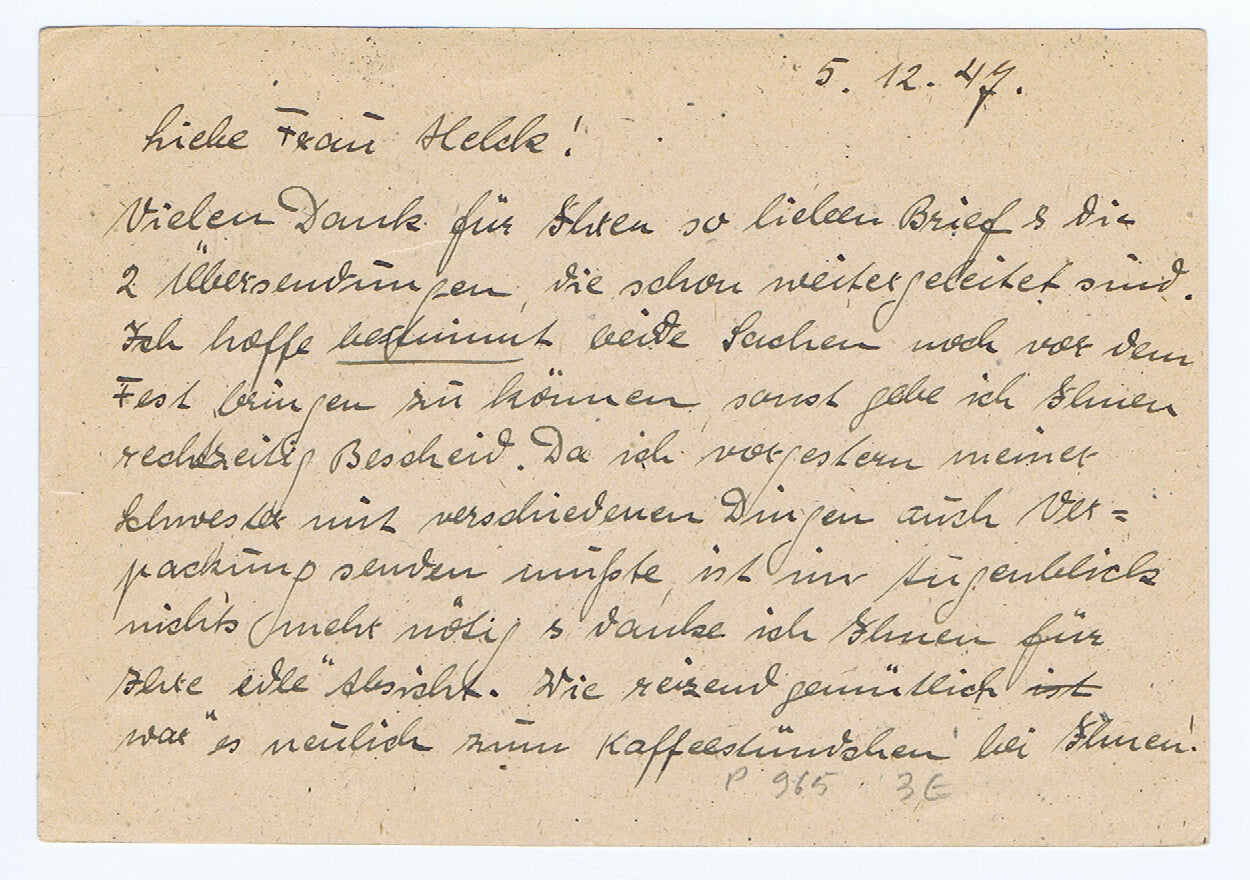 5. 12. 47.
Liebe Frau Helck!
Vielen Dank für Ihren so lieben Brief & die
2 Übersendungen, die schon weitergeleitet sind.
Ich hoffe bestimmt beide Sachen noch vor dem
Fest bringen zu können, sonst gebe ich Ihnen
rechtzeitig Bescheid. Da ich vorgestern meiner
Schwester mit verschiedenen Dingen auch Ver=
packung senden mußte, ist im Augenblick
nichts mehr nötig & danke ich Ihnen für
Ihre "edle" Absicht. Wie reizend gemütlich ist
war es neulich zum Kaffeestündchen bei Ihnen!
P 965 3E